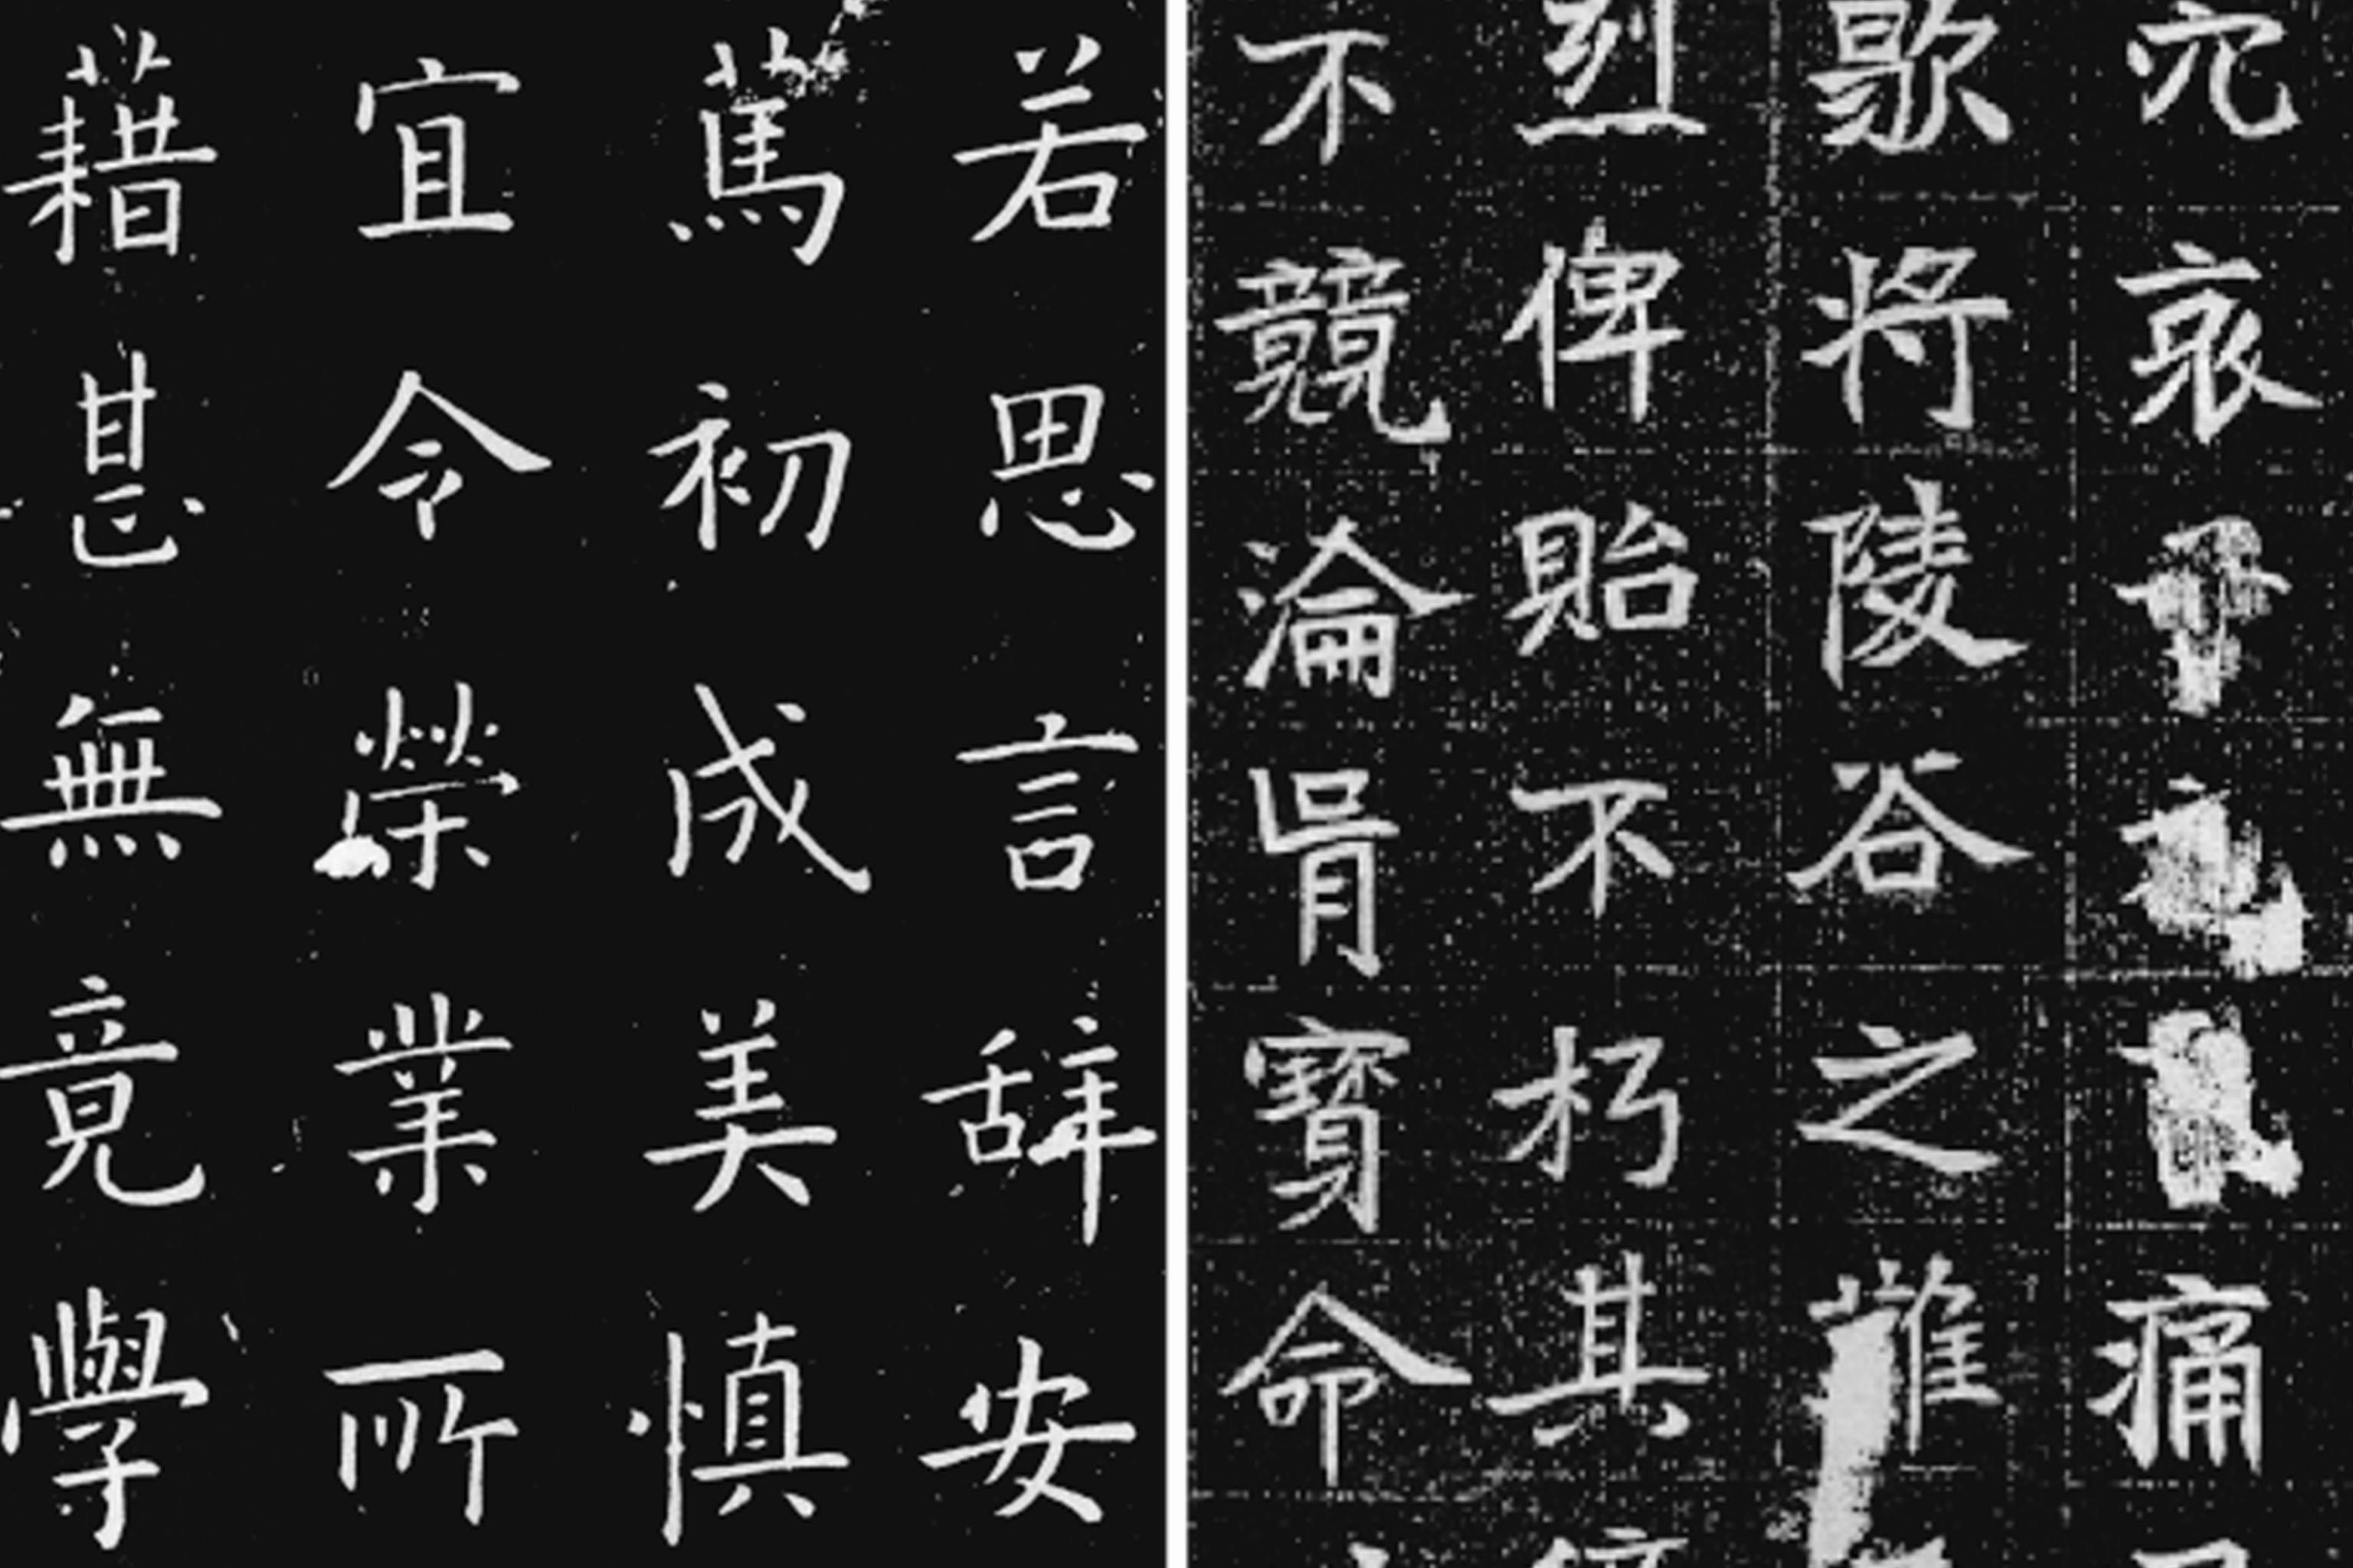 若思言辭安
篤初成美慎
宜令榮業所
藉甚無竟學
穴哀痛
歌將陵谷之難
烈俾貽不朽其
不競淪胥寶命